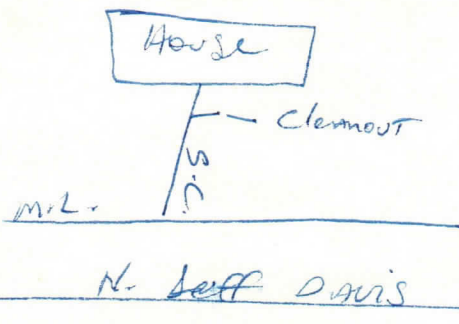 House
Cleanout
S.
M.L.
N. Jeff DAVIS